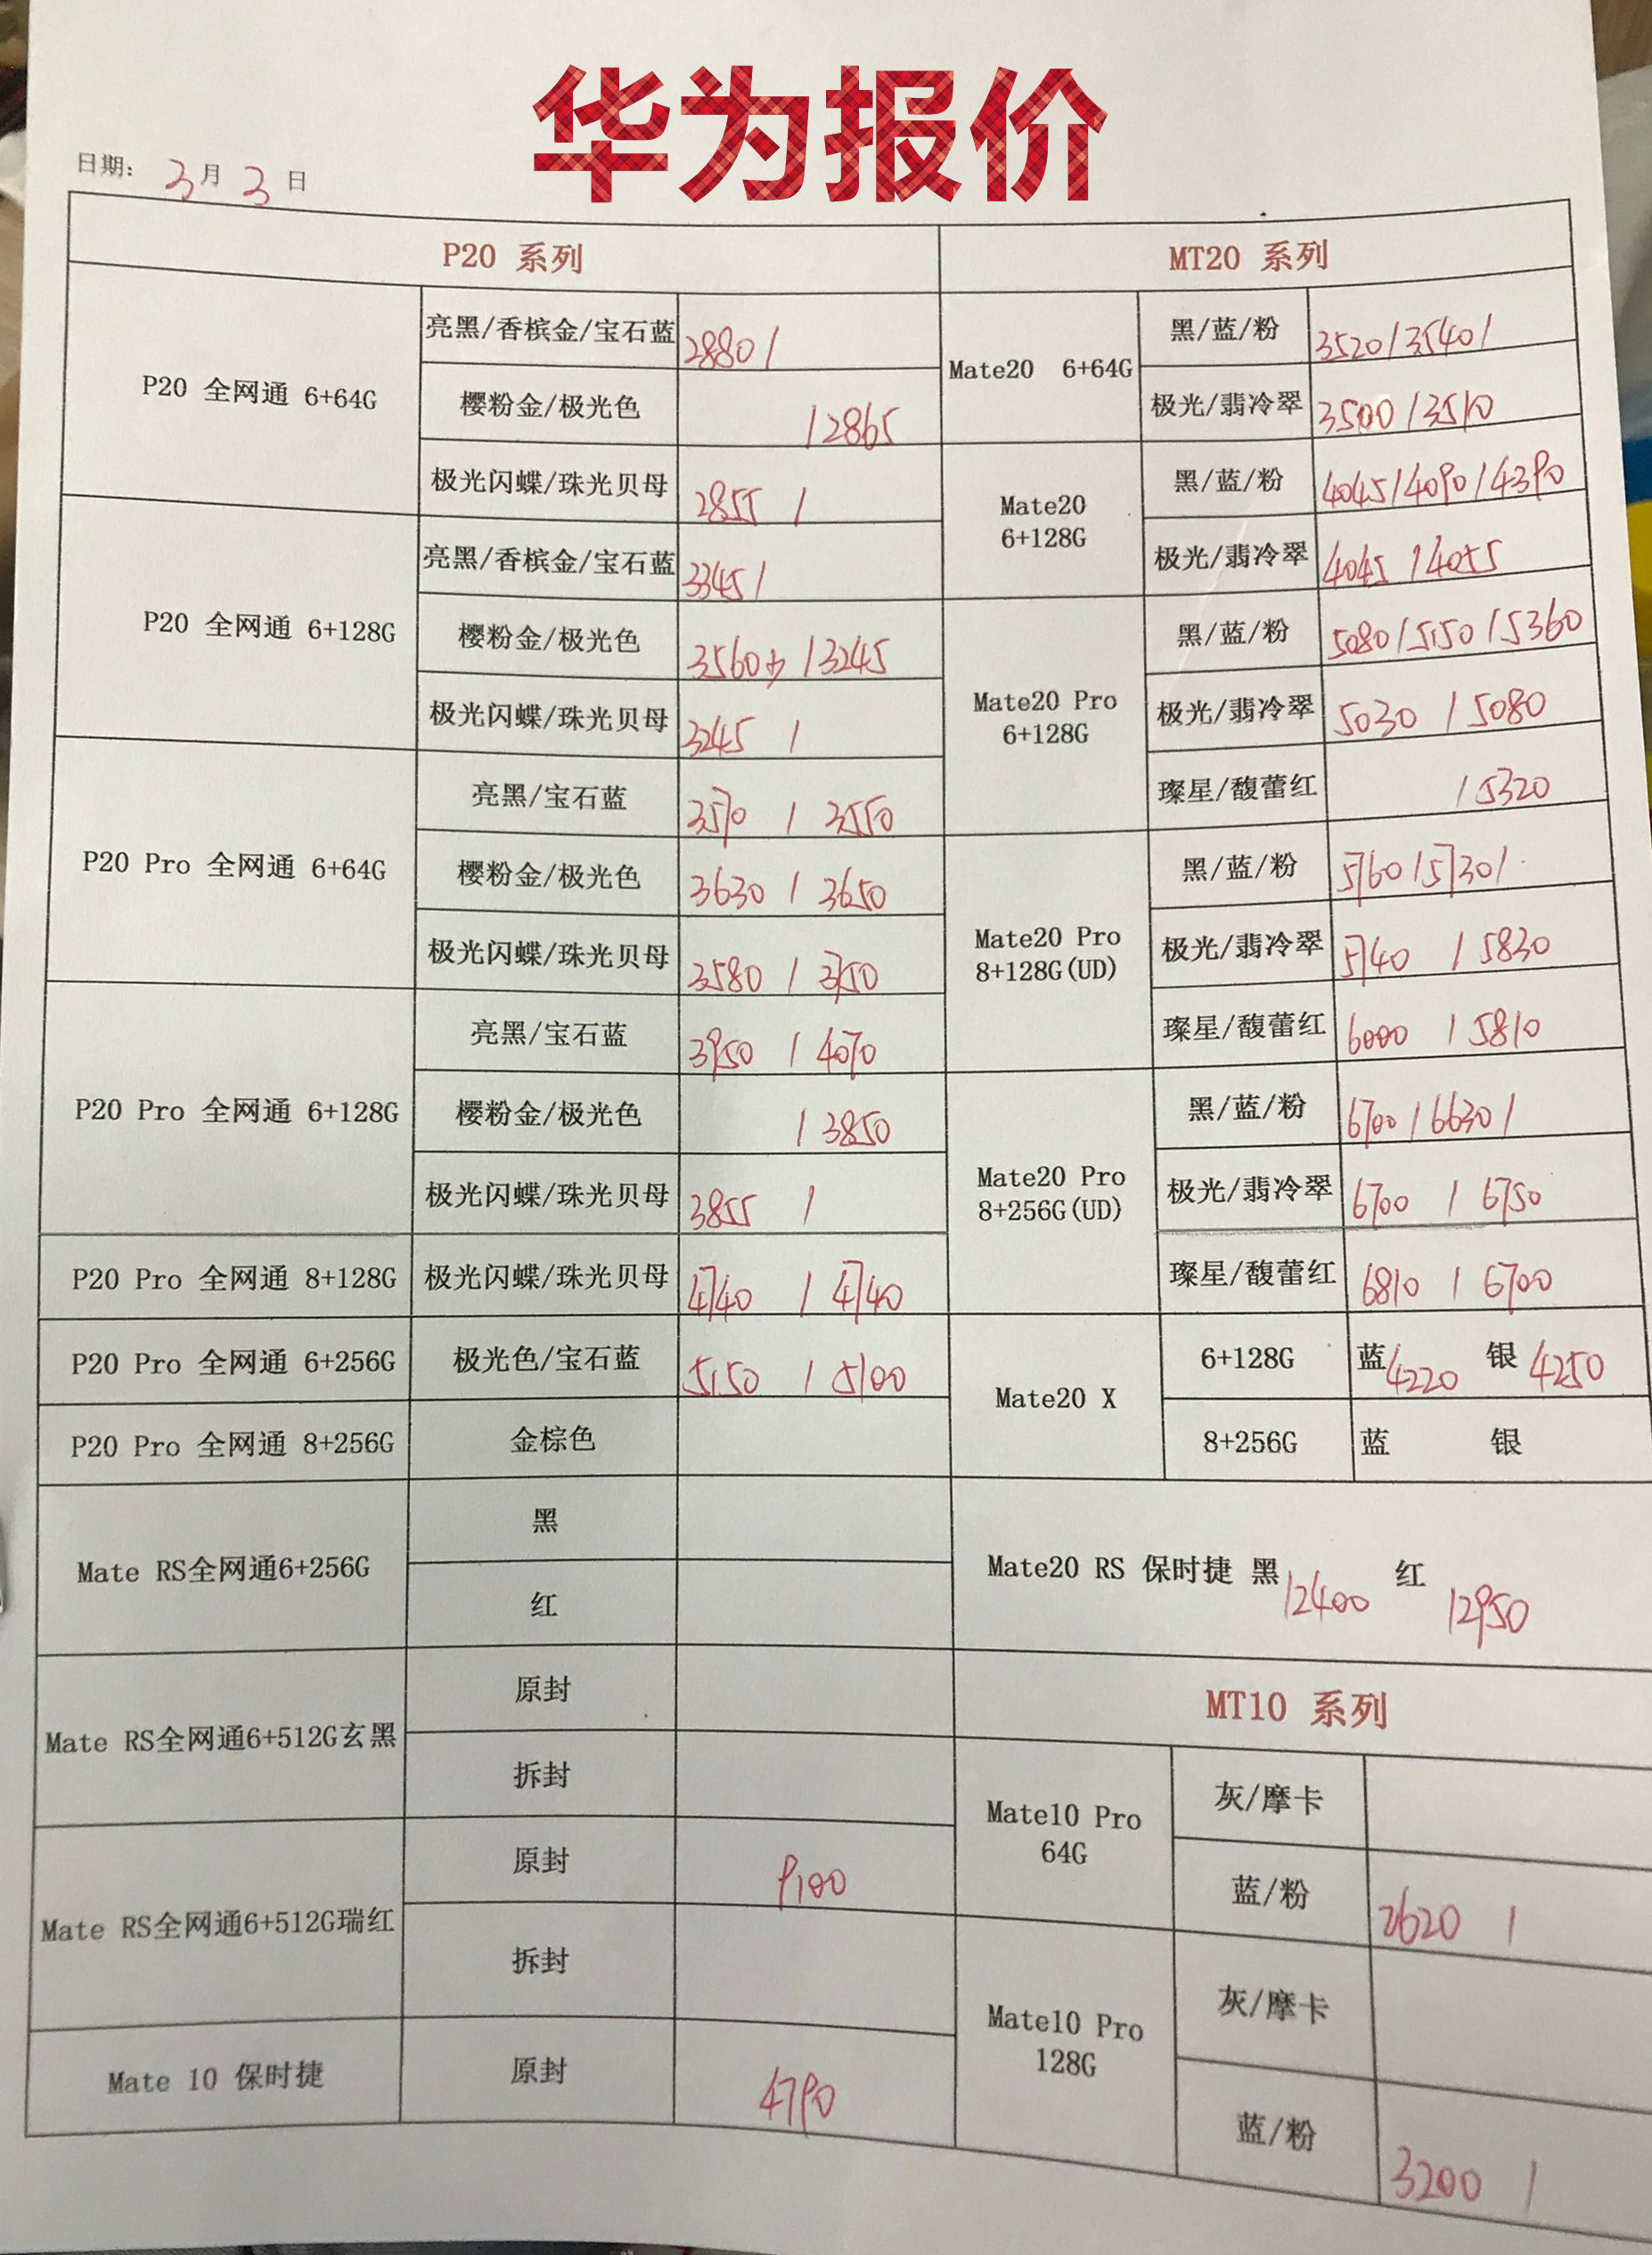 华为报价
日期: 3月3日
P20 系列
P20 全网通 6+64G
亮黑/香槟金/宝石蓝 2880/
樱粉金/极光色 /2865
极光闪蝶/珠光贝母 2855 /
P20 全网通 6+128G
亮黑/香槟金/宝石蓝 3345/
樱粉金/极光色 3560 /3245
极光闪蝶/珠光贝母 3245 /
P20 Pro 全网通 6+64G
亮黑/宝石蓝 3570 / 3550
樱粉金/极光色 3630 / 3650
极光闪蝶/珠光贝母 3580 / 3750
P20 Pro 全网通 6+128G
亮黑/宝石蓝 3950 / 4070
樱粉金/极光色 / 3850
极光闪蝶/珠光贝母 3855 /
P20 Pro 全网通 8+128G 极光闪蝶/珠光贝母 4740 / 4740
P20 Pro 全网通 6+256G 极光色/宝石蓝 5150 / 5100
P20 Pro 全网通 8+256G 金棕色
Mate RS全网通6+256G
黑
红
Mate RS全网通6+512G玄黑
原封
拆封
Mate RS全网通6+512G瑞红
原封 9100
拆封
Mate 10 保时捷 原封 4790
MT20 系列
Mate20 6+64G
黑/蓝/粉 3520/3540/
极光/翡冷翠 3500/3510
Mate20
6+128G
黑/蓝/粉 4045/4090/4390
极光/翡冷翠 4045/4055
Mate20 Pro
6+128G
黑/蓝/粉 5080/5150/5360
极光/翡冷翠 5030 / 5080
璨星/馥蕾红 / 5320
Mate20 Pro
8+128G(UD)
黑/蓝/粉 5760/5730/
极光/翡冷翠 5740 / 5830
璨星/馥蕾红 6000 / 5810
Mate20 Pro
8+256G(UD)
黑/蓝/粉 6700/6630/
极光/翡冷翠 6700 / 6750
璨星/馥蕾红 6810 / 6700
Mate20 X
6+128G 蓝4220 银4250
8+256G 蓝 银
Mate20 RS 保时捷 黑12400 红12950
MT10 系列
Mate10 Pro
64G
灰/摩卡
蓝/粉 2620 /
Mate10 Pro
128G
灰/摩卡
蓝/粉 3200 /